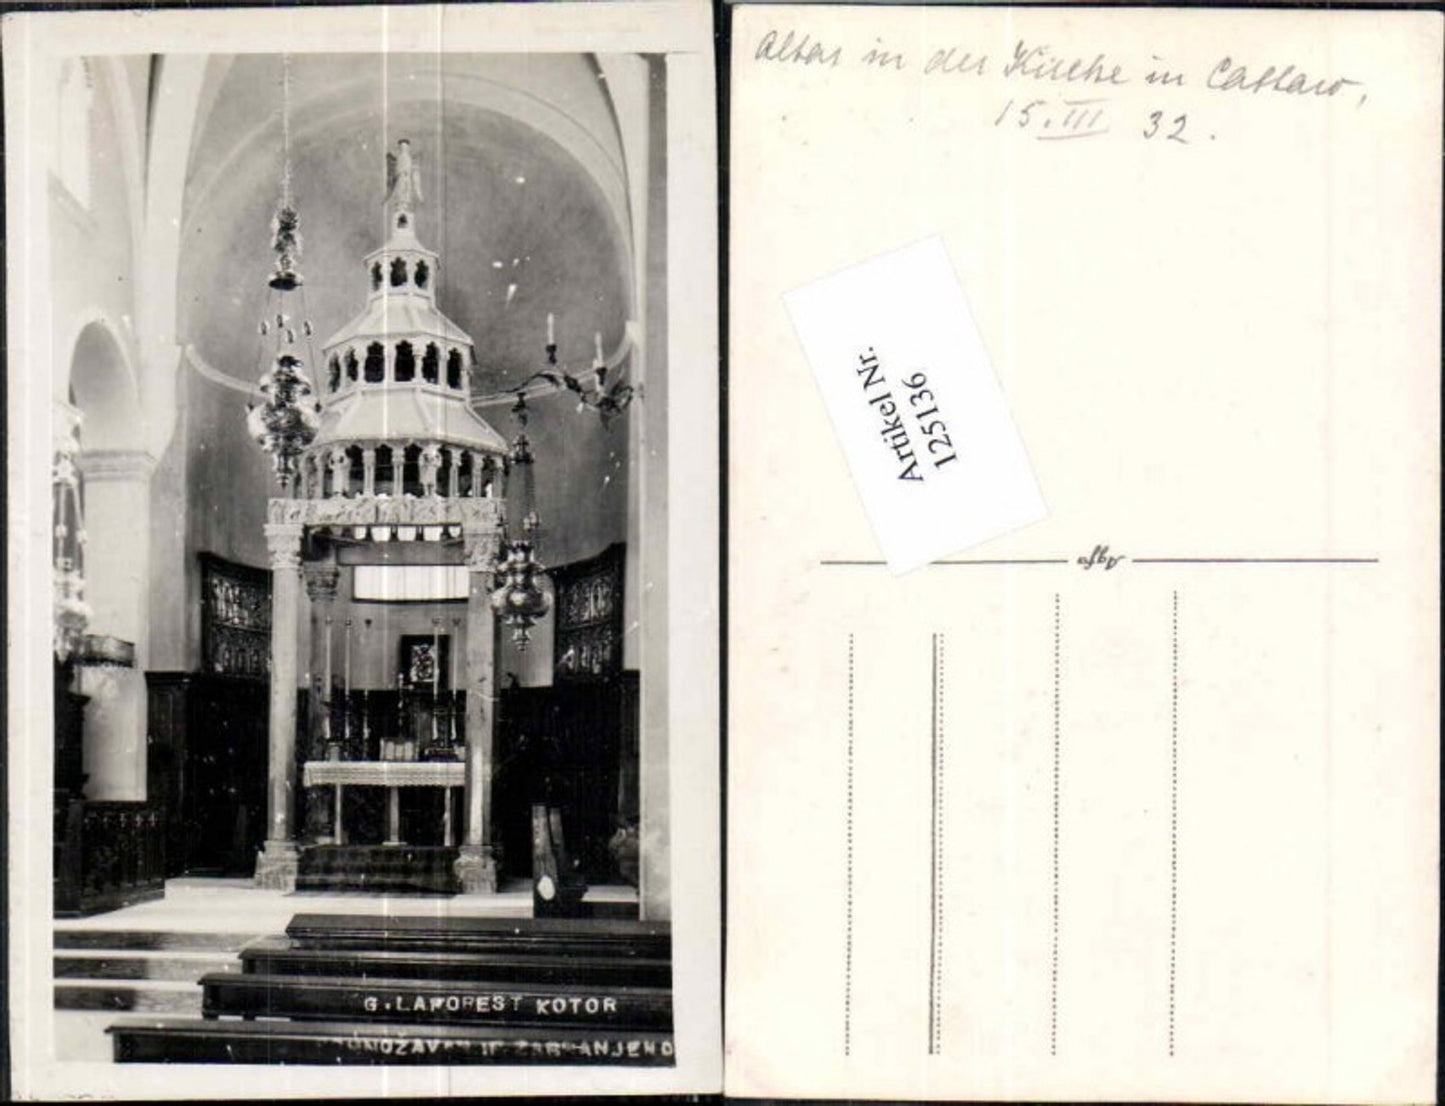 G. LAFOREST KOTOR
UMNOŽAVANJE ZABRANJENO
Altar in der Kirche in Cattaro,
15. III 32.
Artikel Nr.
125136
Agfa